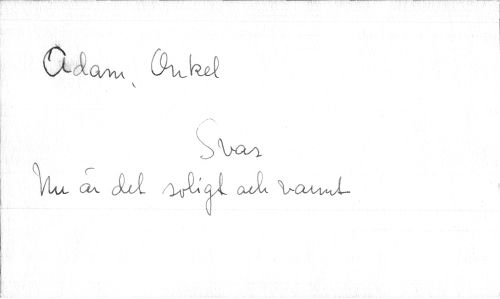 Adam, Onkel
Svar
Nu är det soligt och varmt